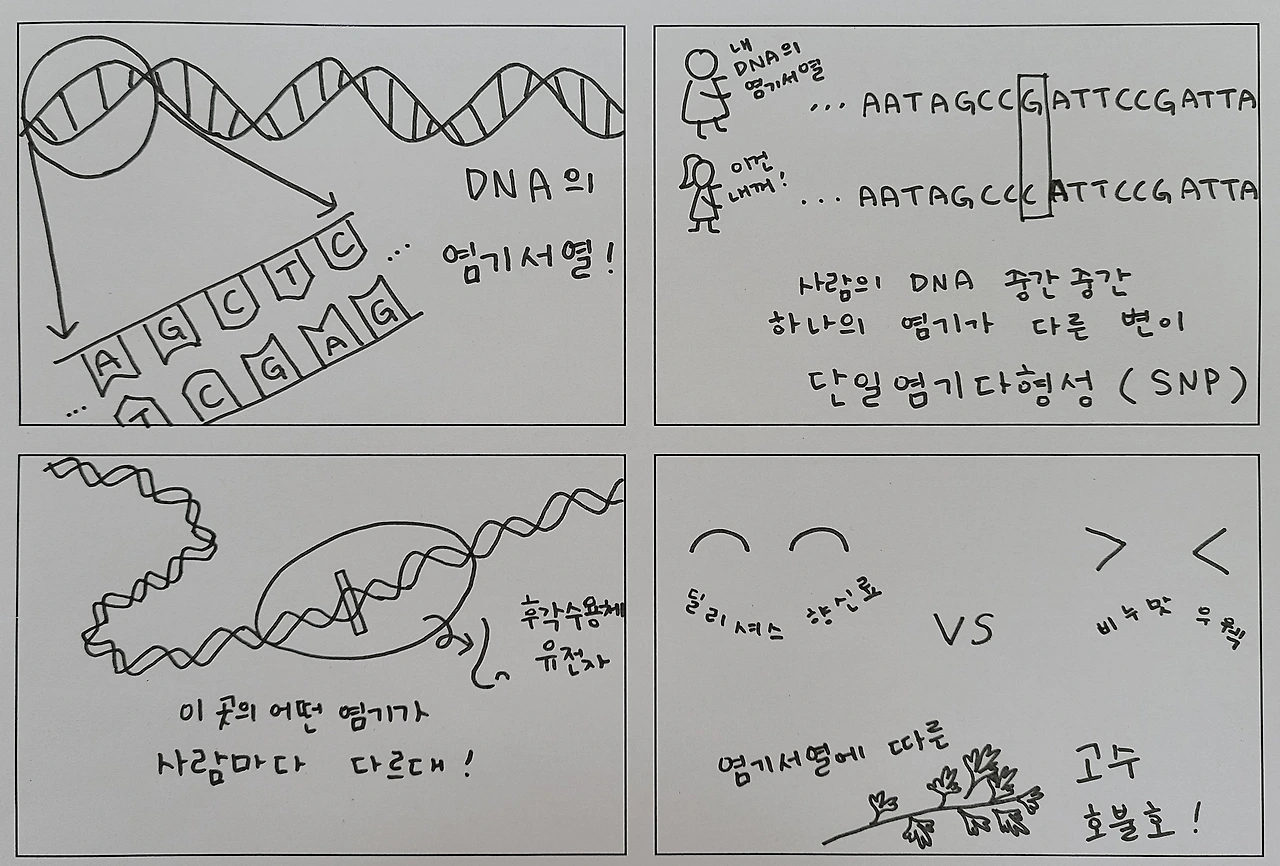 DNA의
염기서열!
A G C T C ...
... T C G A G
내
DNA의
염기서열
... AATAGCCGATTCCGATTA
이건
내꺼!
... AATAGCCCATTCCGATTA
사람의 DNA 중간중간
하나의 염기가 다른 변이
단일염기다형성 (SNP)
후각수용체
유전자
이 곳의 어떤 염기가
사람마다 다르대!
딜리셔스 향신료
VS
비누맛 우웩
염기서열에 따른
고수
호불호!